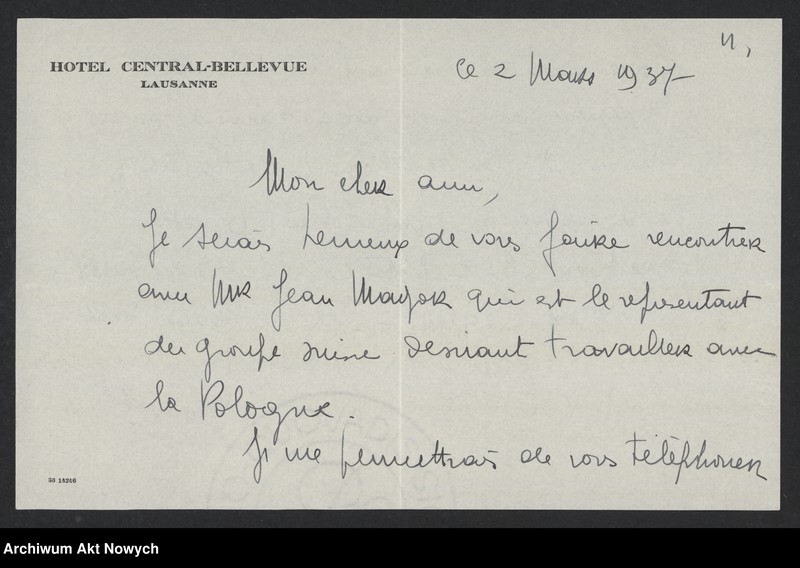 HOTEL CENTRAL-BELLEVUE
LAUSANNE
Ce 2 Mars 1937
Mon cher ami,
Je serais heureux de vous faire rencontrer
avec Mr Jean qui est le representant
du groupe suisse desirant travailler avec
la Pologne.
Je me permettrais de vous téléphoner
50 15246
Archiwum Akt Nowych